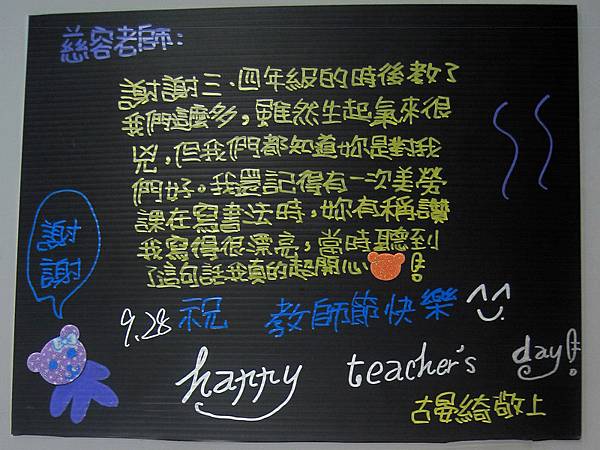 慈容老師:
謝謝三、四年級的時後教了
我們這麼多,雖然生起氣來很
兇,但我們都知道妳是對我
們好。我還記得有一次美勞
課在寫書法時,妳有稱讚
我寫得很漂亮,當時聽到
了這句話我真的超開心!
謝謝
9.28 祝 教師節快樂 ^^
happy teacher's day!
古晏綺敬上